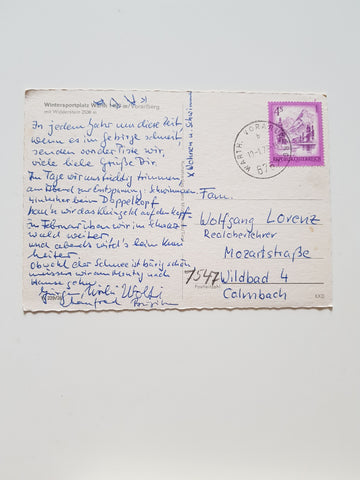 Wintersportplatz Warth, 1495 m, Vorarlberg
mit Widderstein 2536 m
In jedem Jahr um diese Zeit,
wenn es im Gebirge schneit,
senden von der Piste wir,
viele liebe Grüße Dir.
Im Tage wir anständig trimmen,
am Abend zur Entspannung: Schwimmen
hinterher beim Doppelkopf
haut wir das Kleingeld auf den Kopf
Im Februar üben wir im Schwarz-
wald weiter
und abends wird's beim Kuni
heiter.
Obwohl der Schnee ist bärig schön
müssen wir am Montag nach
Hause gehn.
Manfred
x Wohnen u. Schwimmen
4 S
REPUBLIK ÖSTERREICH
WARTH, VORARLB
Fam.
Wolfgang Lorenz
Realoberlehrer
Mozartstraße
7547 Wildbad 4
Calmbach
Postleitzahl